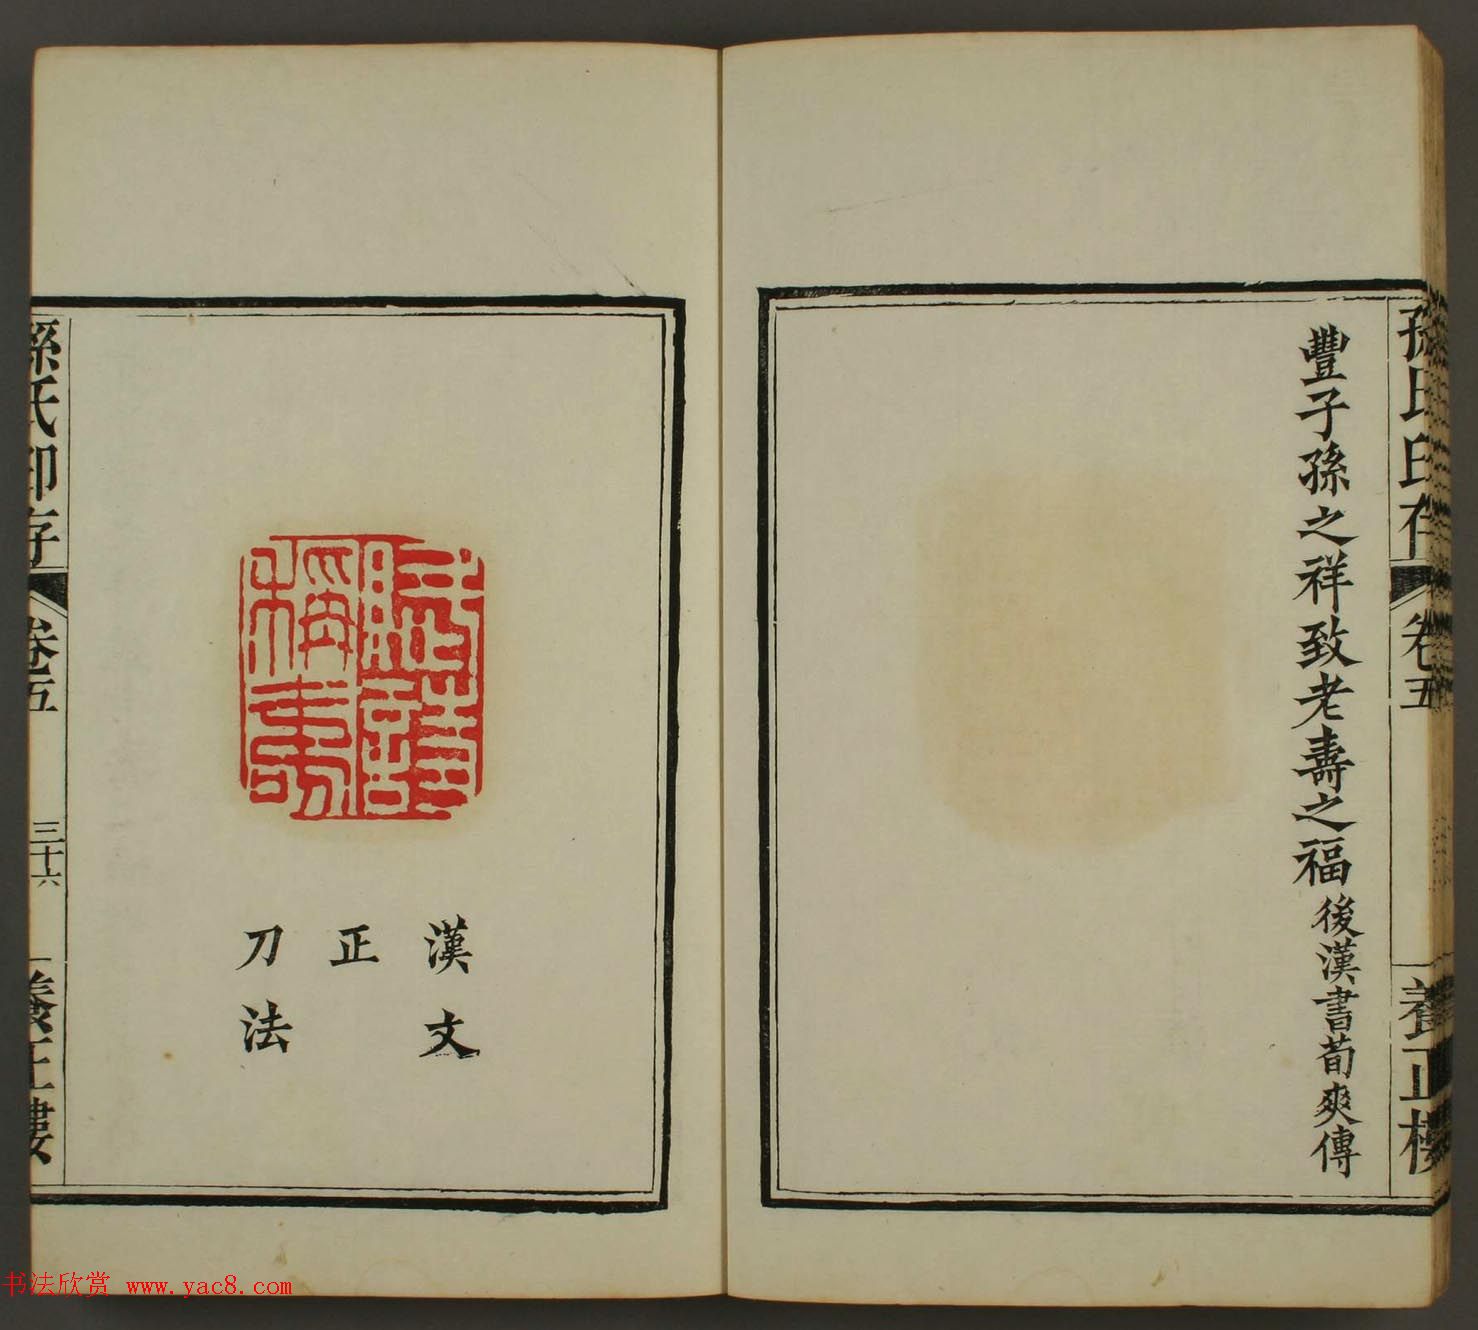 孫氏印存
卷五
養正樓
豐子孫之祥致老壽之福後漢書荀爽傳
賦詩
稱壽
漢文
正
刀法
孫氏印存
卷五
三十六
養正樓
书法欣赏 www.yac8.com